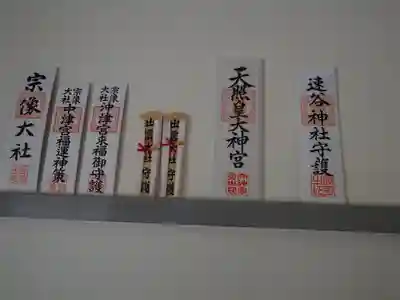 宗像大社
宗像大社
中津宮福運神策
宗像大社
沖津宮来福御守護
出雲大社守護
出雲大社守護
天照皇大神宮
速谷神社守護